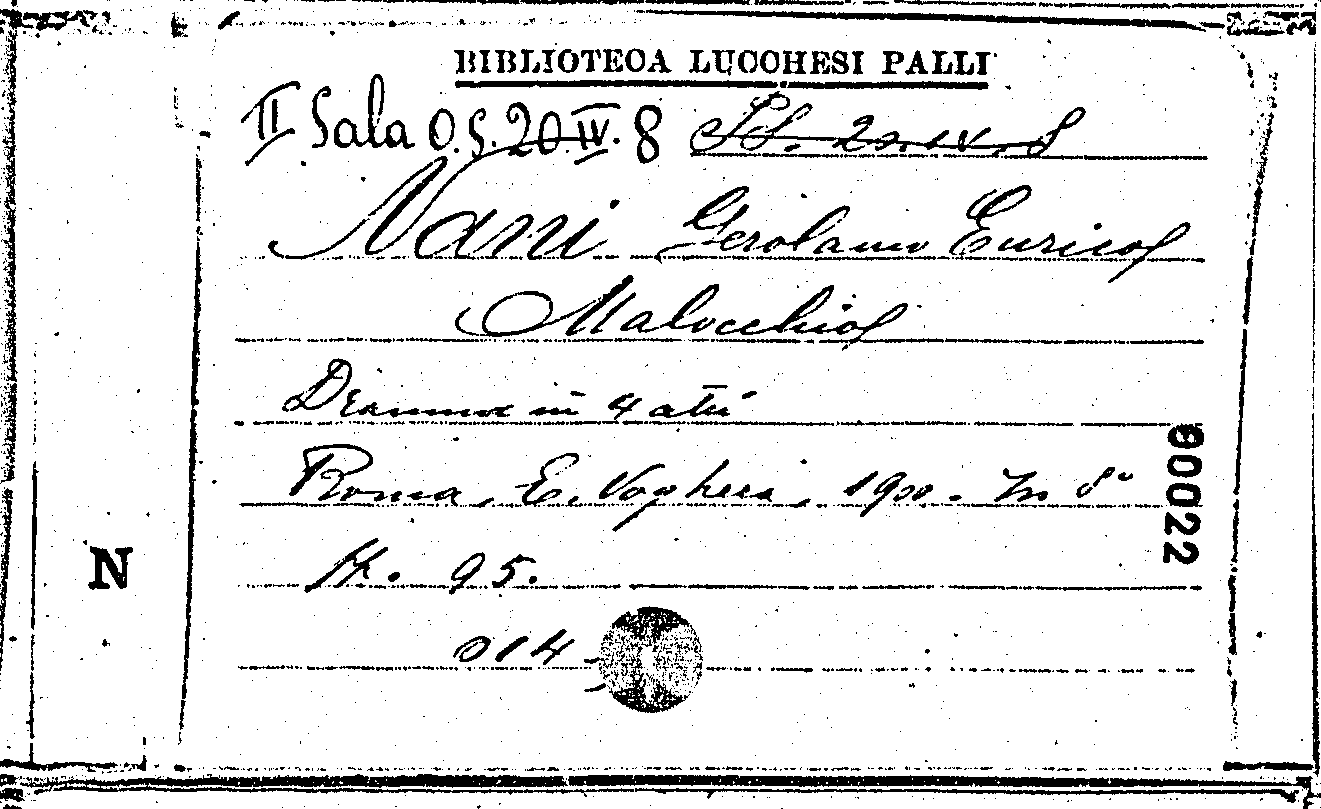 BIBLIOTECA LUCCHESI PALLI
II Sala O.S. 20 IV. 8 Sl. 20. IV. 8
Nani Gerolamo Enrico
Malocchio
Dramma in 4 atti
Roma, E. Voghera, 1900. In 8°
pp. 95.
014
N
00022